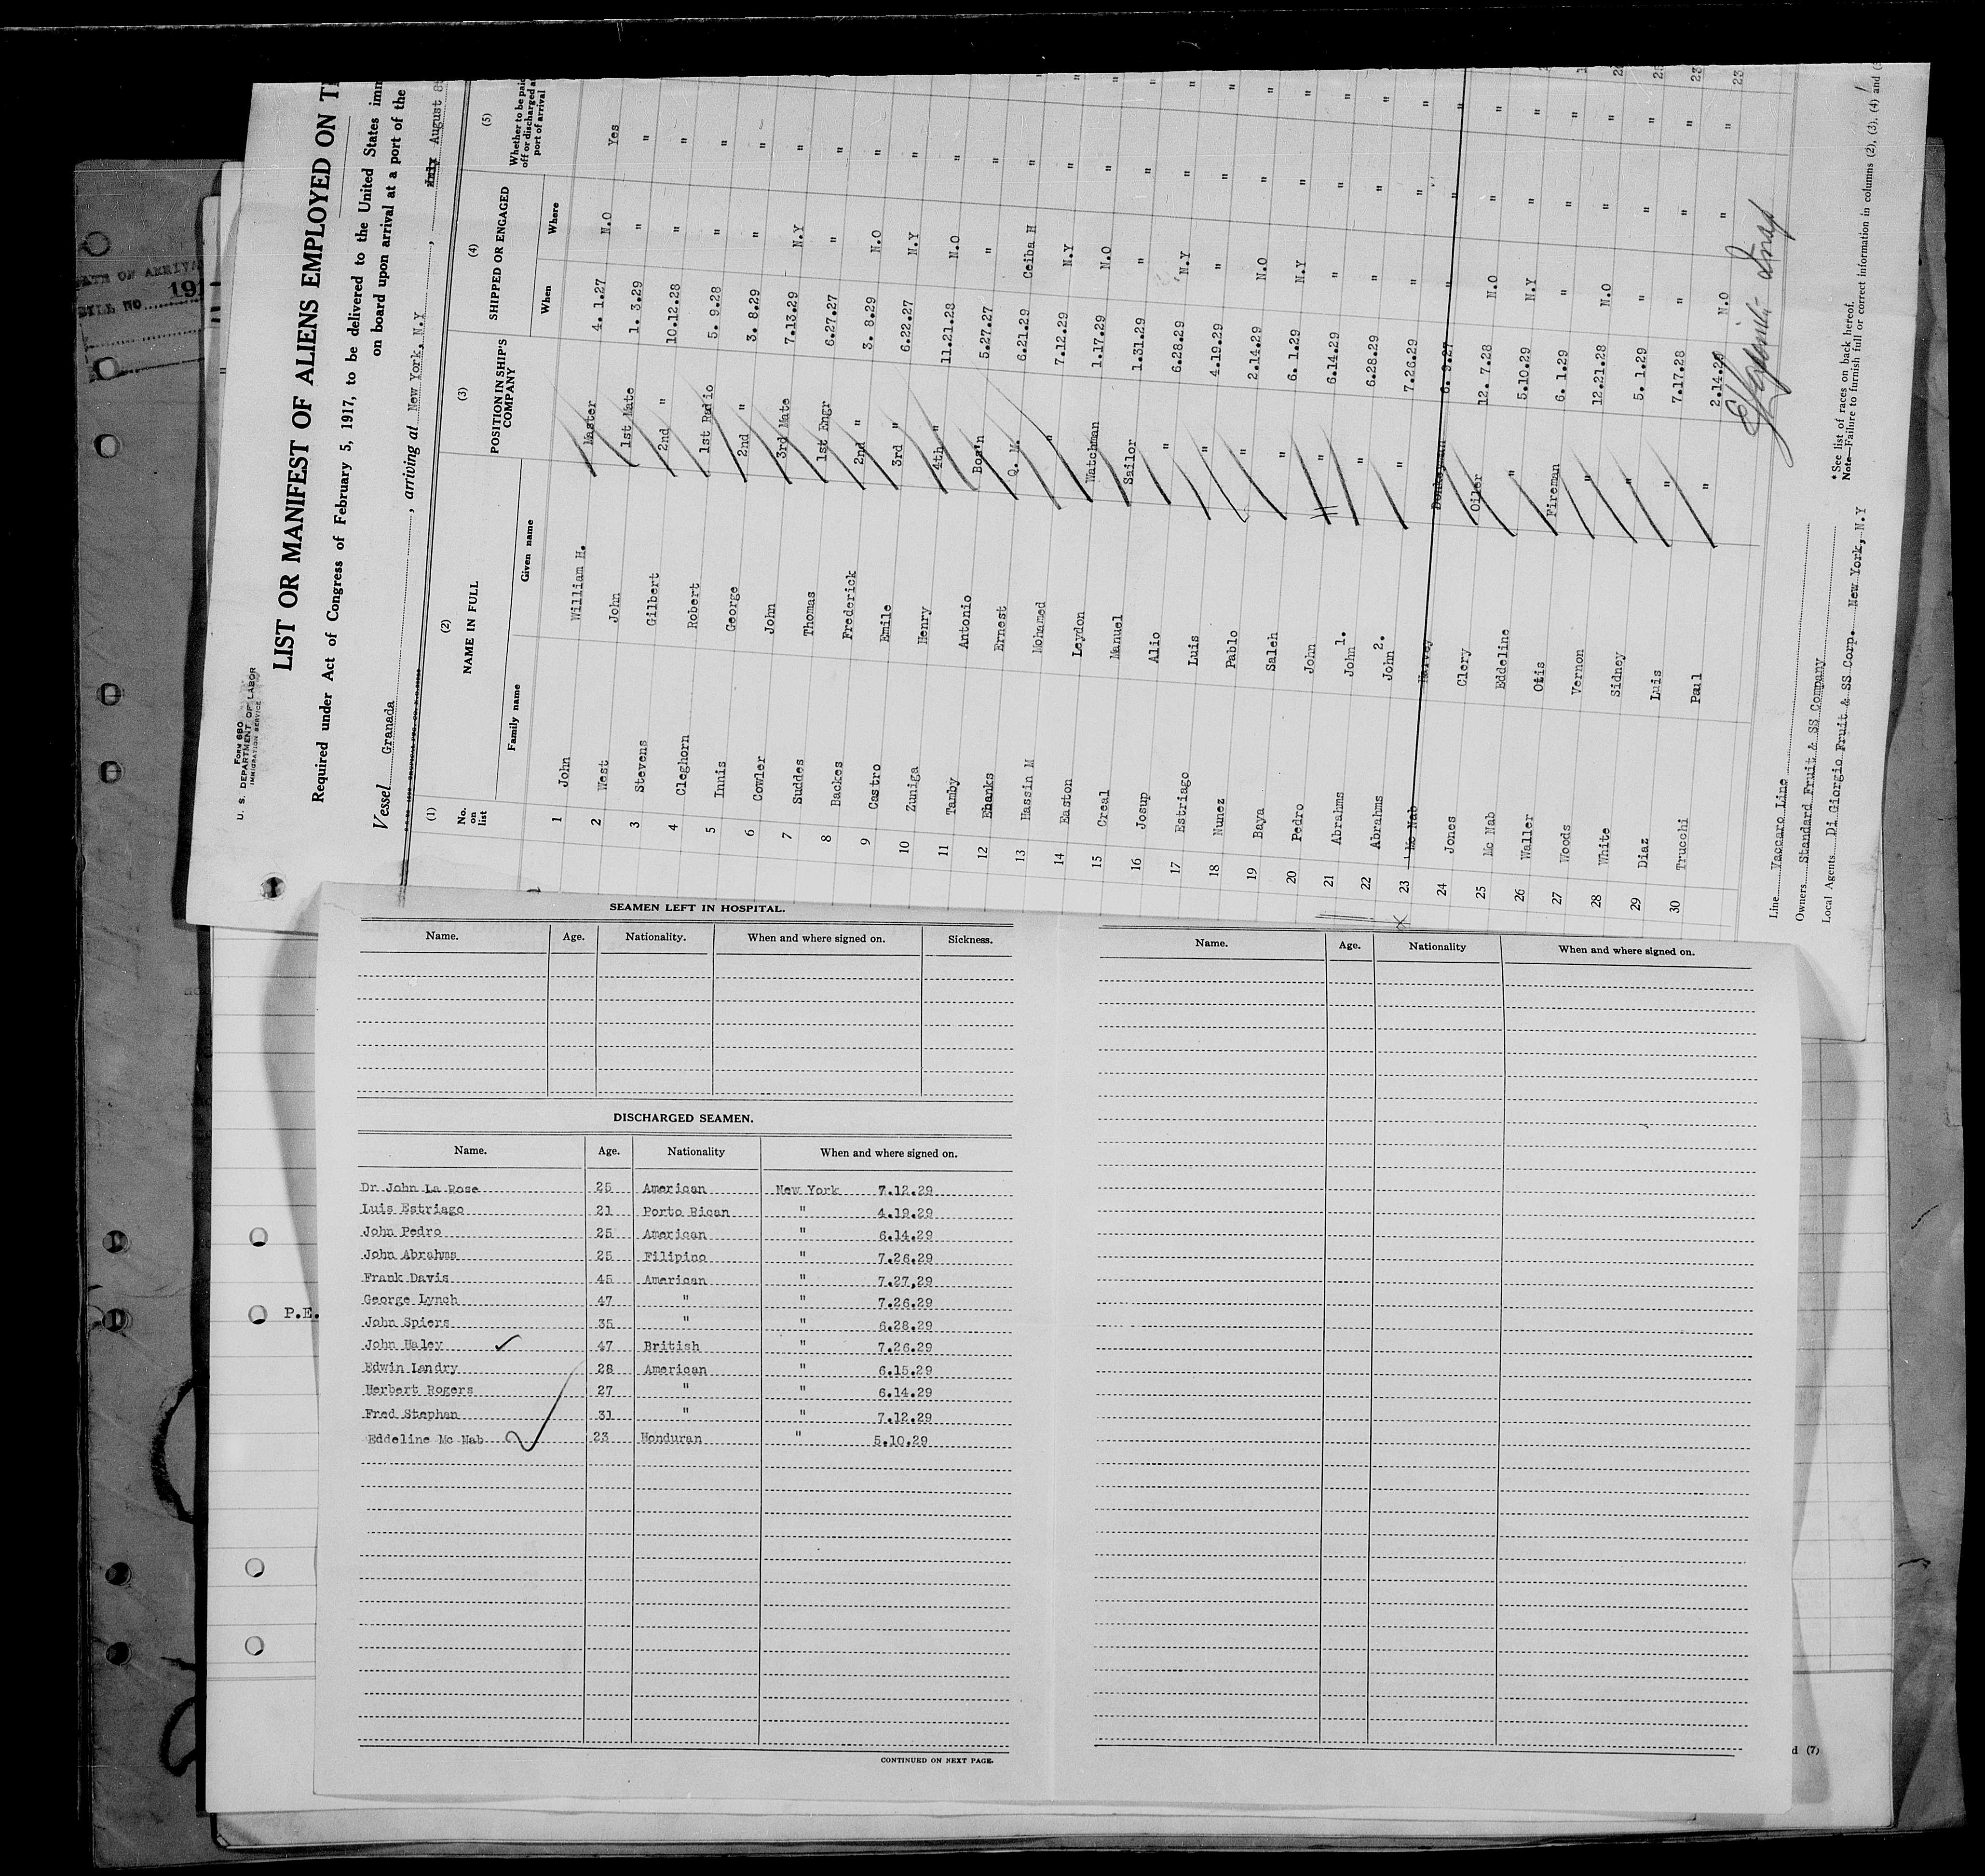 FORM 680
U. S. DEPARTMENT OF LABOR
IMMIGRATION SERVICE
LIST OR MANIFEST OF ALIENS EMPLOYED ON
Required under Act of Congress of February 5, 1917, to be delivered to the United States
on board upon arrival at a port of the
Vessel Granada, arriving at New York, N.Y, August
(1) (2) (3) (4) (5)
No. on list NAME IN FULL POSITION IN SHIP'S COMPANY SHIPPED OR ENGAGED Whether to be paid off or discharged at port of arrival
Family name Given name When Where
1 John William H. Master 4. 1.27 N.O Yes
2 West John 1st Mate 1. 3.29 " "
3 Stevens Gilbert 2nd " 10.12.28 " "
4 Cleghorn Robert 1st Radio 5. 9.28 " "
5 Innis George 2nd " 3. 8.29 " "
6 Cowler John 3rd Mate 7.13.29 N.Y "
7 Suddes Thomas 1st Engr 6.27.27 " "
8 Backes Frederick 2nd " 3. 8.29 N.O "
9 Castro Emile 3rd " 6.22.27 N.Y "
10 Zuniga Henry 4th " 11.21.28 N.O "
11 Tamby Antonio Bos'n 5.27.27 " "
12 Ebanks Ernest Q. M. 6.21.29 Ceiba H "
13 Hassin M Mohamed " 7.12.29 N.Y "
14 Easton Leydon Watchman 1.17.29 N.O "
15 Creal Manuel Sailor 1.31.29 " "
16 Josup Alio " 6.28.29 N.Y "
17 Estriago Luis " 4.19.29 " "
18 Nunez Pablo " 2.14.29 N.O "
19 Baya Saleh " 6. 1.29 N.Y "
20 Pedro John " 6.14.29 " "
21 Abrahms John 1. " 6.28.29 " "
22 Abrahms John 2. " 7.26.29 " "
23 Mc Nab Harvey Donkeyman 6. 9.27 " "
24 Jones Clery Oiler 12. 7.28 N.O "
25 Mc Nab Eddeline " 5.10.29 N.Y "
26 Waller Otis Fireman 6. 1.29 " "
27 Woods Vernon " 12.21.28 N.O "
28 White Sidney " 5. 1.29 " "
29 Diaz Luis " 7.17.28 " "
30 Trucchi Paul " 2.14.29 N.O "
Line Vaccaro Line
Owners Standard Fruit & SS Company
Local Agents Di Giorgio Fruit & SS Corp. New York, N.Y
* See list of races on back hereof.
Note—Failure to furnish full or correct information in columns (2), (3), (4) and
SEAMEN LEFT IN HOSPITAL.
Name. Age. Nationality. When and where signed on. Sickness.
DISCHARGED SEAMEN.
Name. Age. Nationality When and where signed on.
Dr John La Rose 25 American New York 7.12.29
Luis Estriago 21 Porto Rican " 4.19.29
John Pedro 25 American " 6.14.29
John Abrahms 25 Filipino " 7.26.29
Frank Davis 45 American " 7.27,29
George Lynch 47 " " 7.26.29
John Spiers 35 " " 6.28.29
John Haley 47 British " 7.26.29
Edwin Landry 28 American " 6.15.29
Herbert Rogers 27 " " 6.14.29
Fred Stephan 31 " " 7.12.29
Eddeline Mc Nab 23 Honduran " 5.10.29
CONTINUED ON NEXT PAGE.
Name. Age. Nationality When and where signed on.
P.E.
d (7)